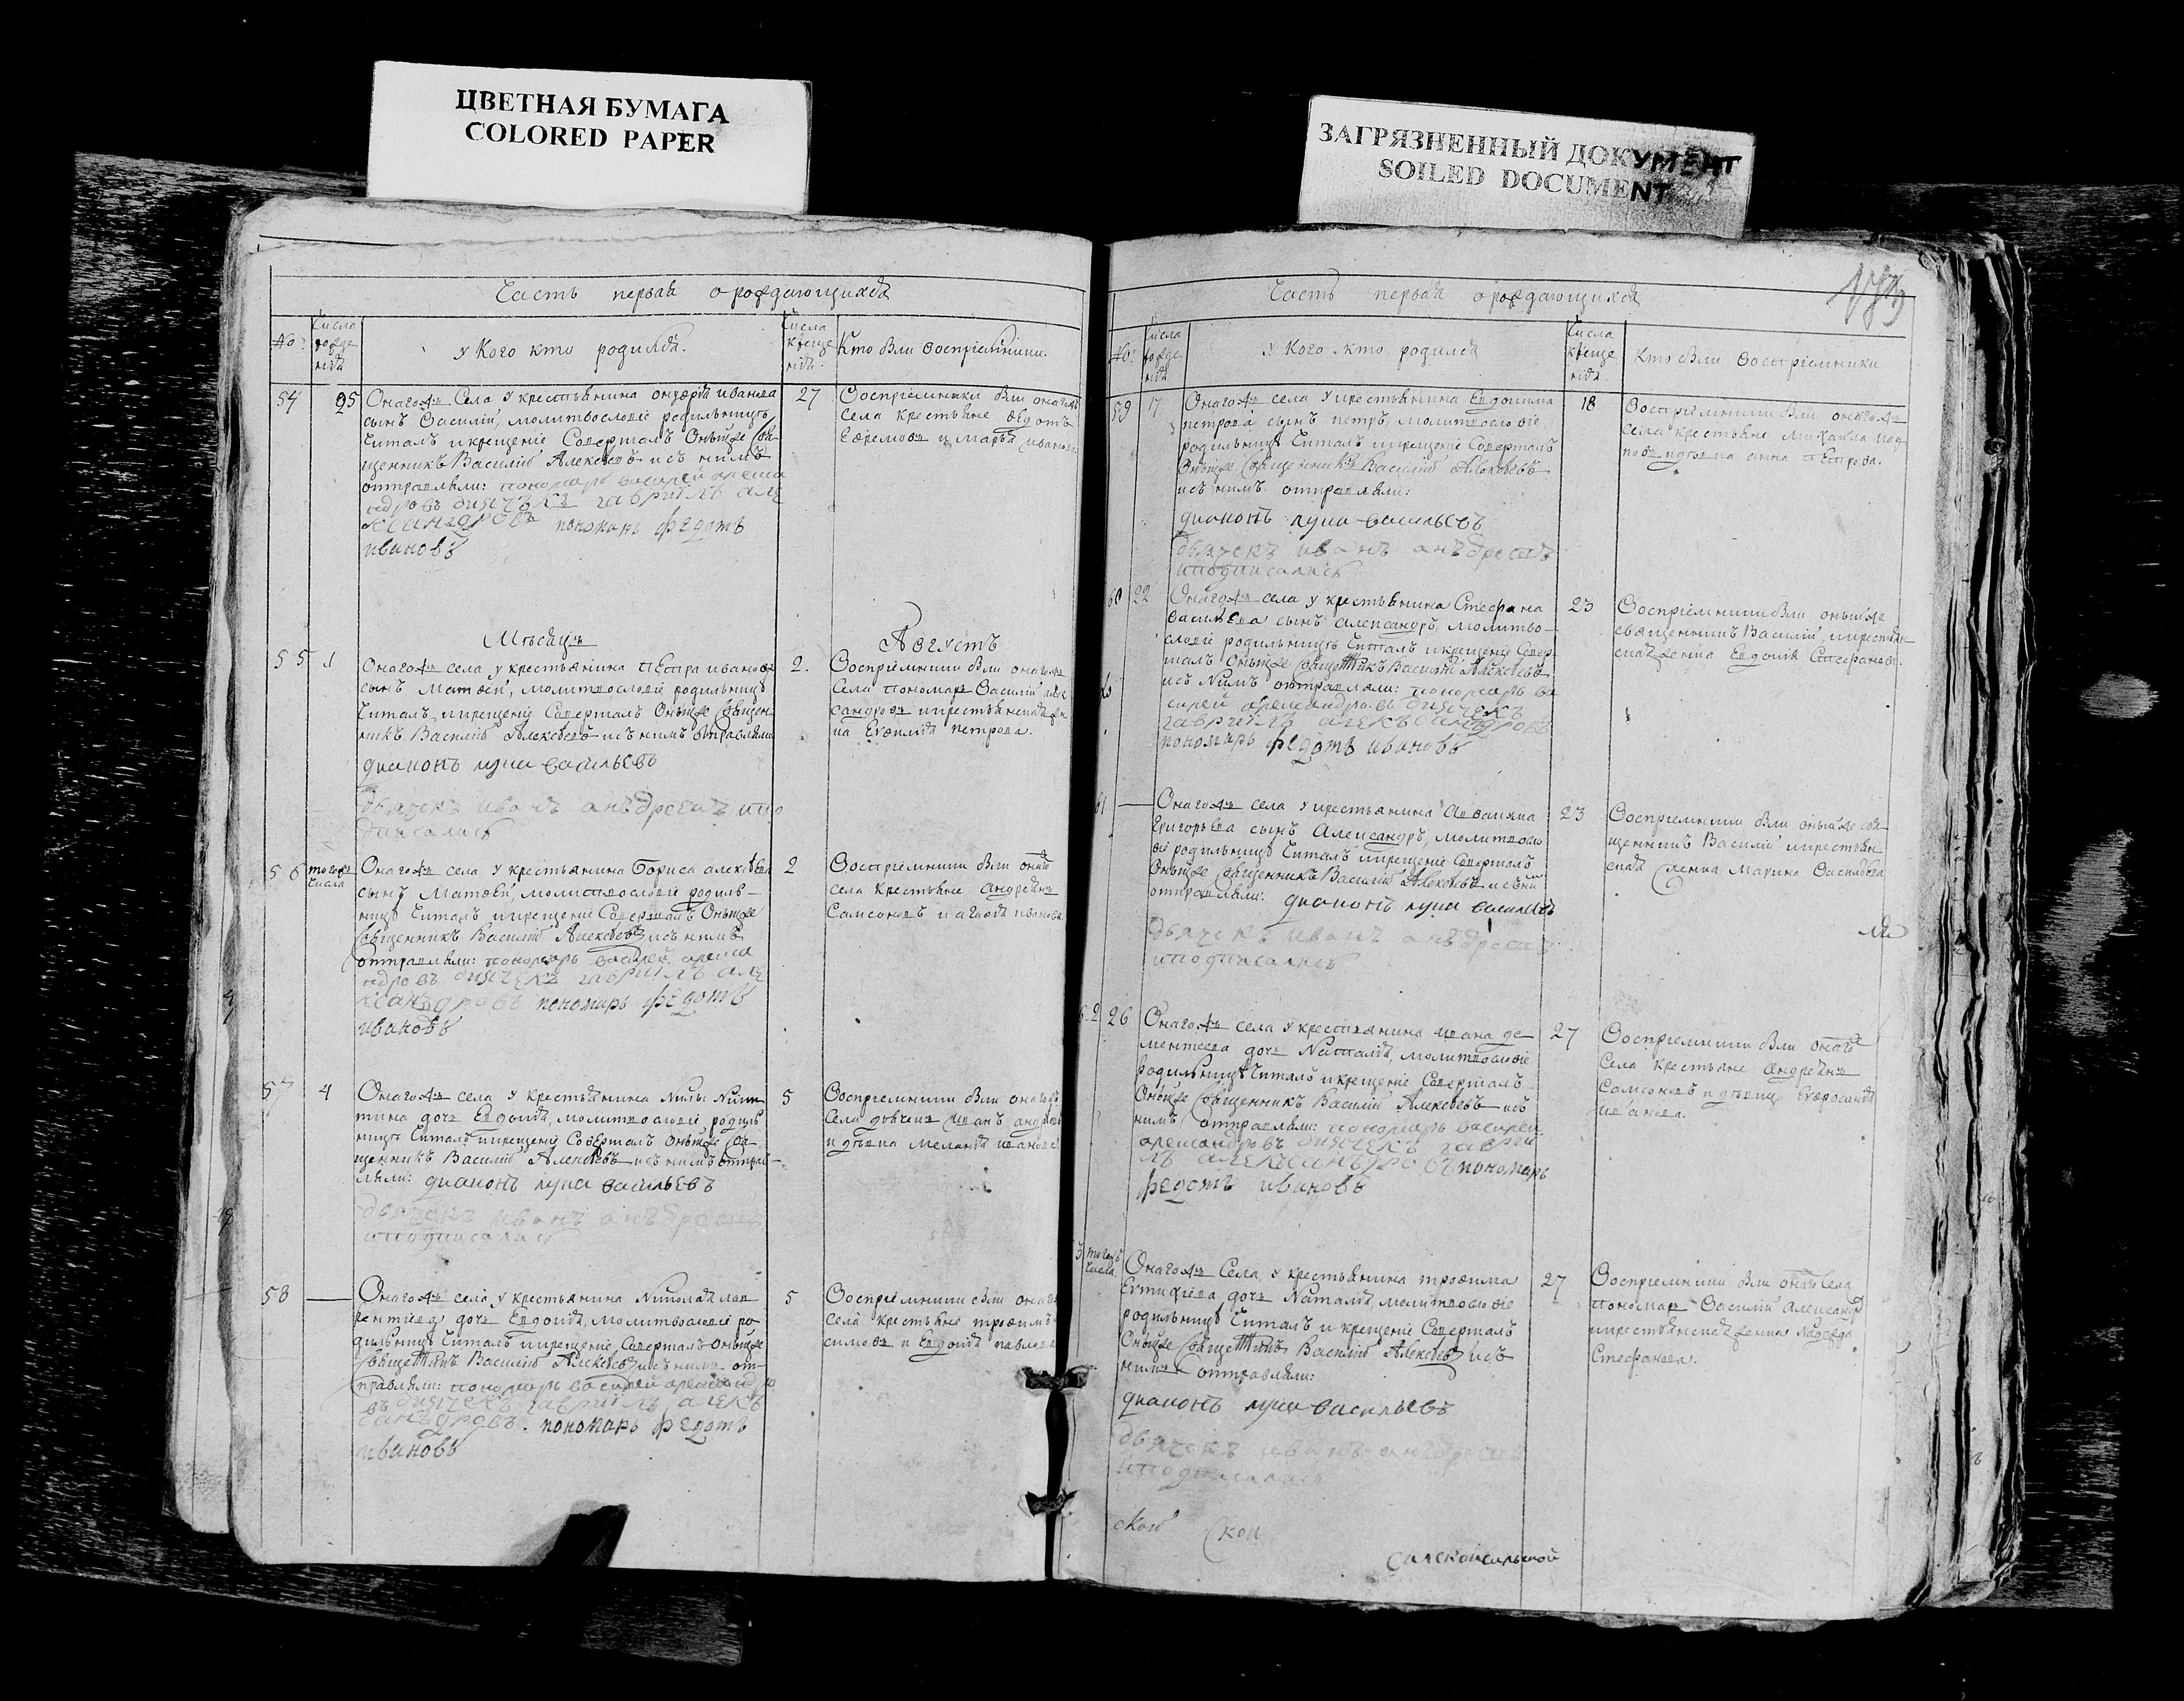 ЦВЕТНАЯ БУМАГА
COLORED PAPER
ЗАГРЯЗНЕННЫЙ ДОКУМЕНТ
SOILED DOCUMENT
Часть первая о рождающихся
№
Числа рождения
у Кого кто родился.
Числа крещения
Кто были воспріемники.
54
25
Онагожъ Села у крестьянина Иванова
сынъ Василій, молитвословіе родильницѣ
Читалъ и крещеніе Совершалъ Оныйже Свя-
щенникъ Василій Алексѣевъ и съ нимъ
отправляли: пономарь василей алекса
ндровъ дьячекъ гаврiилъ але
ксандровъ пономарь федотъ
ивановъ
27
Воспріемники были онагожъ
Села крестьяне Ѳедотъ
Ефремовъ и Марья иванова.
Мѣсяцъ Августъ
55
1
Онагожъ села у крестьянина Петра иванова
сынъ Матвѣй, молитвословіе родильницѣ
Читалъ и крещеніе Совершалъ Оныйже Священ
никъ Василій Алексѣевъ и съ нимъ отправляли
диаконъ лука васильевъ
дьячекъ иванъ анъдреевъ ипо
дписались
2.
Воспріемники были онагожъ
Села пономарь Василий алек
сандровъ и крестьянская жен
ка Евфимія петрова.
56
тогожъ числа
Онагожъ села у крестьянина Бориса алексѣева
сынъ Матвѣй, молитвословіе родиль-
ницѣ Читалъ и крещеніе Совершалъ Оныйже
Священникъ Василій Алексѣевъ и съ нимъ
отправляли: пономарь василей алекса
ндровъ дьячекъ гаврiилъ але
ксанъдровъ пономарь федотъ
ивановъ
2
Воспріемники были онагожъ
села крестьяне андреянъ
Самсоновъ и агафія иванова
57
4
Онагожъ села у крестьянина Никиты Ники
тина дочь Евдокія, молитвословіе родиль
ницѣ Читалъ и крещеніе Совершалъ Оныйже Свя
щенникъ Василій Алексѣевъ и съ нимъ отправ-
ляли: диаконъ лука васильевъ
дьячекъ иванъ анъдреевъ
иподписались
5
Воспріемники были онагожъ
Села дьячекъ Иванъ андреевъ
и дѣвка Меланія иванова
58
Онагожъ села у крестьянина Николая лав
рентіева дочь Евдокія, молитвословіе ро
дильницѣ Читалъ и крещеніе Совершалъ Оныйже
Священникъ Василій Алексѣевъ и съ нимъ от-
правляли: пономарь василей александро
въ дьячекъ гаврiилъ алекъ
санъдровъ. пономарь федотъ
ивановъ
5
Воспріемники были онагожъ
села крестьяне трофимъ
и Евдокія павлова
Часть первая о рождающихся
№
Числа рождения
у Кого кто родился
Числа крещения
Кто были воспріемники
59
17
Онагожъ села у крестьянина Евдокима
петрова сынъ петръ, молитвословіе
родильницѣ Читалъ и крещеніе Совершалъ
Оныйже Священникъ Василій Алексѣевъ
и съ нимъ отправляли:
диаконъ лука васильевъ
дьячекъ иванъ анъдреевъ
иподписались
18
Воспріемники были онагожъ
села крестьяне михаила
и дѣвка анна петрова.
60
22
Онагожъ села у крестьянина Стефана
Васильева сынъ александръ, молитво-
словіе родильницѣ Читалъ и крещеніе Совер-
шалъ Оныйже Священникъ Василій Алексѣевъ
и съ нимъ отправляли: пономарь ва
силей александровъ дьячекъ
гаврiилъ алекъсанъдровъ
пономарь федотъ ивановъ
23
Воспріемники были оныйже
священникъ Василій, и крестьян
ская женка Евдокія Стефанова.
61
Онагожъ села у крестьянина
Григорьева сынъ Александръ, молитвосло
віе родильницѣ Читалъ и крещеніе Совершалъ
Оныйже Священникъ Василій Алексѣевъ и съ ни
отправляли: диаконъ лука васильевъ
дьячекъ иванъ анъдреевъ
иподписались
23
Воспріемники были оныйже свя-
щенникъ Василій и крестьян
ская женка Марина Васильева
62
26
Онагожъ села у крестьянина ивана де
ментеева дочь Наталія, молитвословіе
родильницѣ Читалъ и крещеніе Совершалъ
Оныйже Священникъ Василій Алексѣевъ и съ
нимъ отправляли: пономарь василей
александровъ дьячекъ гаврi
лъ алекъсанъдровъ пономарь
федотъ ивановъ
27
Воспріемники были онагожъ
Села крестьяне андреянъ
Самсоновъ и дѣвица Евфросинія
иванова.
3
тогожъ числа
Онагожъ Села у крестьянина трофима
Евтихіева дочь Наталія, молитвословіе
родильницѣ Читалъ и крещеніе Совершалъ
Оныйже Священникъ Василій Алексѣевъ и съ
нимъ отправляли:
диаконъ лука васильевъ
дьячекъ иванъ анъдреевъ
иподписались
27
Воспріемники были онагожъ села
пономарь Василій Александр
и крестьянская женка Надежда
Стефанова.